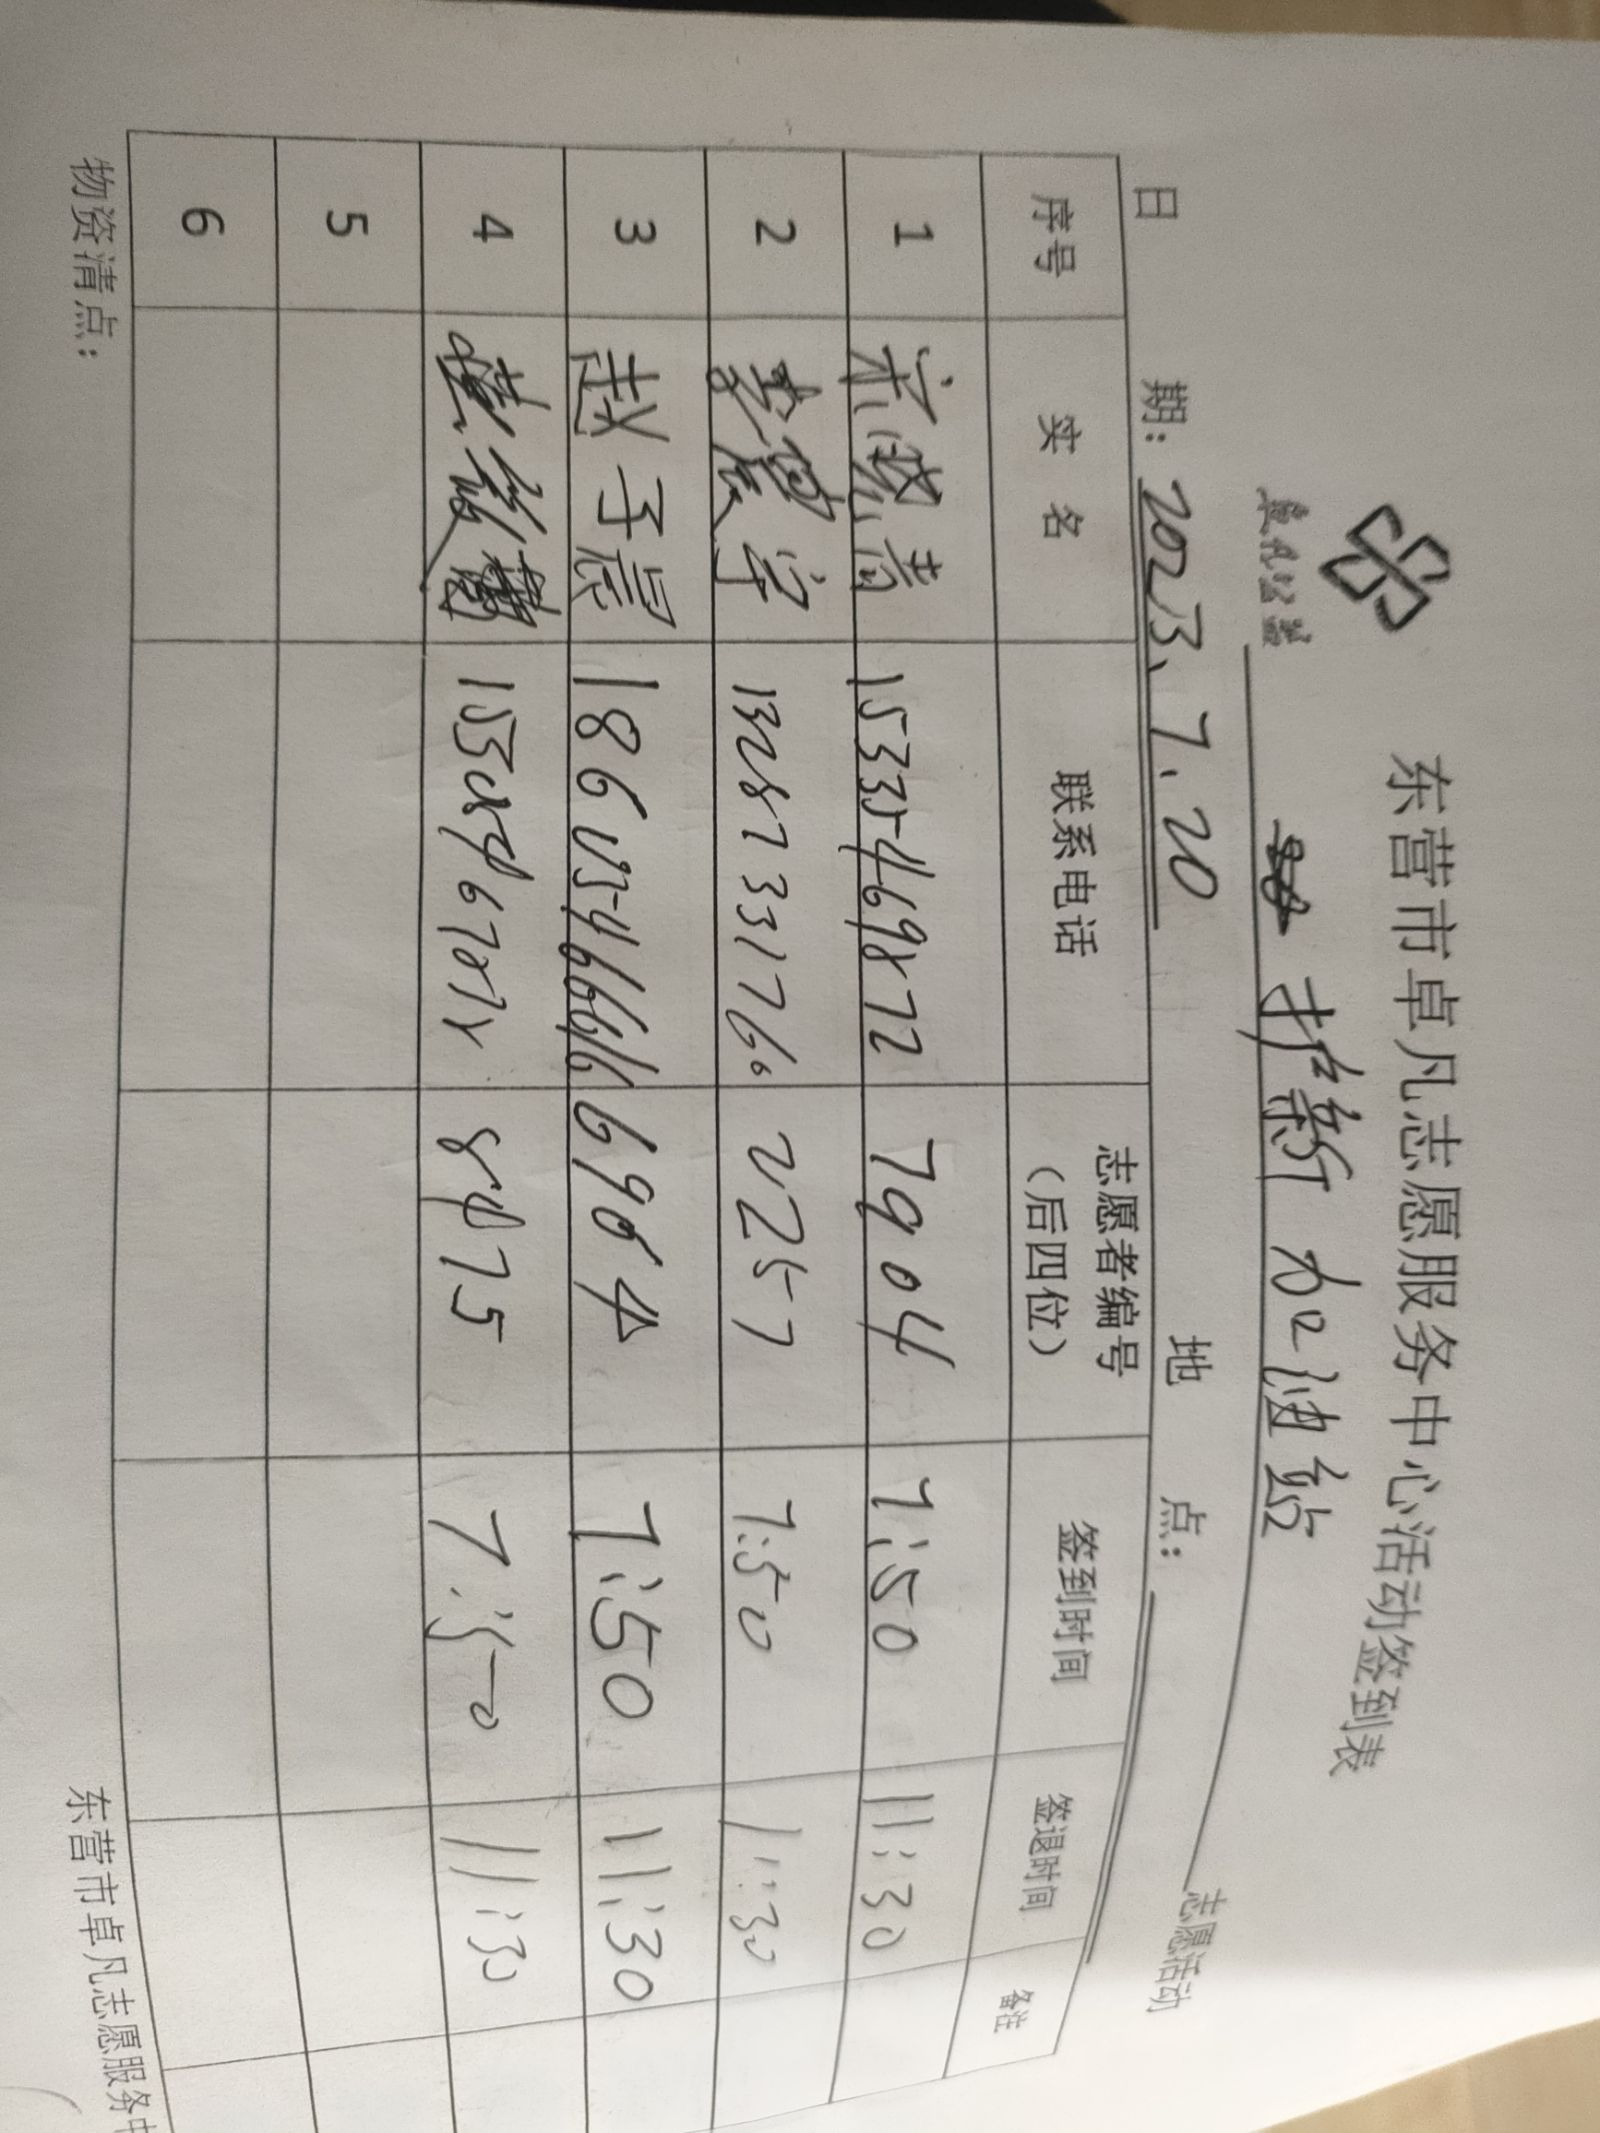 东营市卓凡志愿服务中心活动签到表
卓凡公益
护新加油站 志愿活动
日 期: 2023.7.20 地 点:
序号 实 名 联系电话 志愿者编号（后四位） 签到时间 签退时间 备注
1 15335469872 7904 7:50 11:30
2 13287331760 2257 7:50 11:30
3 赵子晨 18605466666 6964 7:50 11:30
4 7:50 11:30
5
6
物资清点：
东营市卓凡志愿服务中